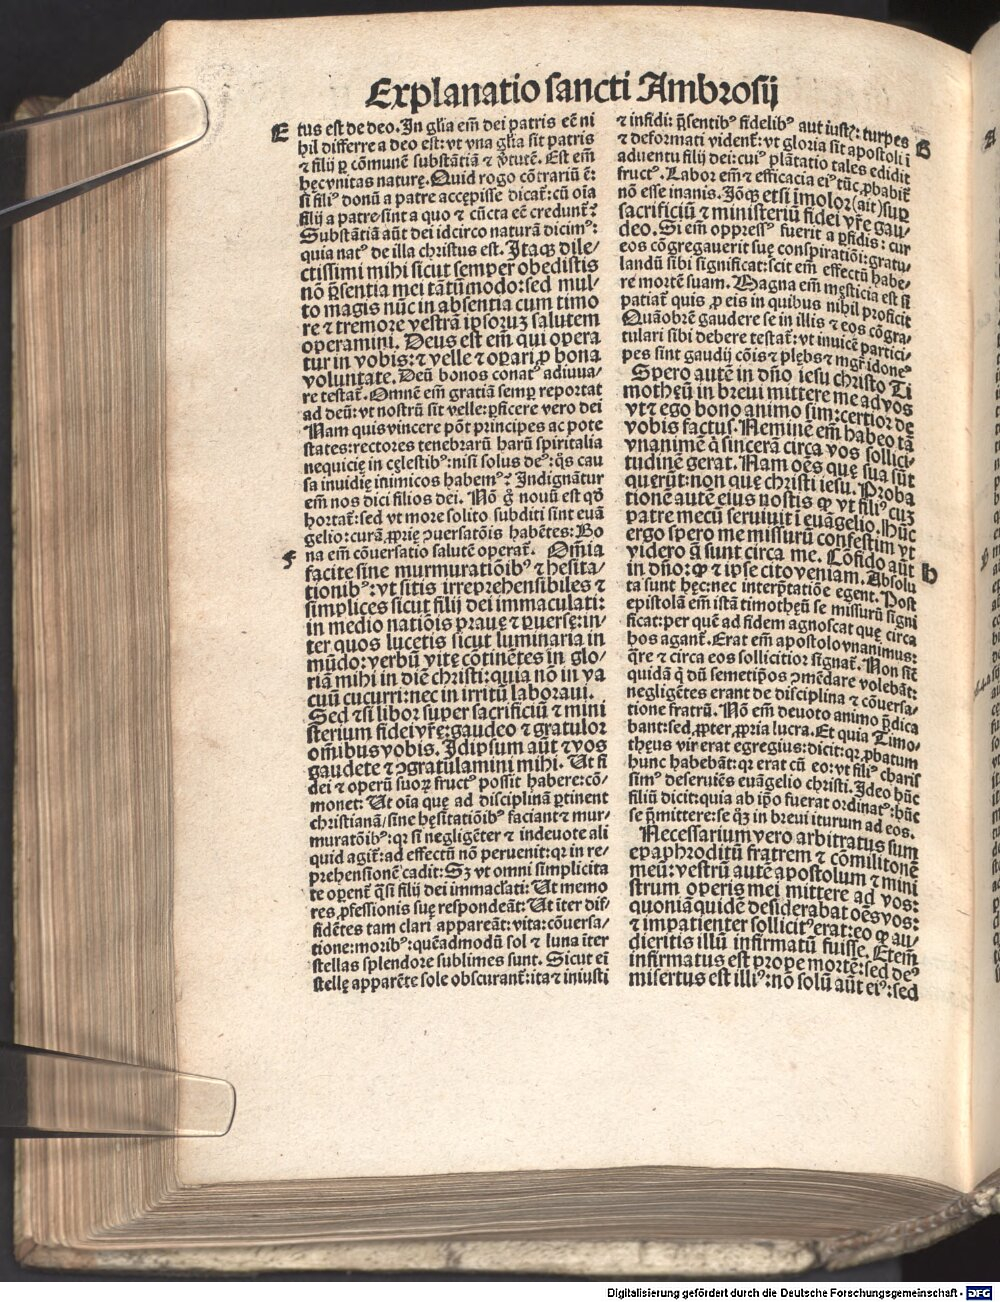 Explanatio sancti Ambrosij
E
tus est de deo. In gl̃ia em̃ dei patris eẽ ni
hil differre a deo est: vt vna gl̃ia sit patris
⁊ filij ꝑ cõmunẽ substãtiã ⁊ ṽtutẽ. Est em̃
hęc vnitas naturę. Quid rogo cõtrariũ ẽ:
si filiꝰ donũ a patre accępisse dicat̃: cũ oĩa
filij a patre sint a quo ⁊ cũcta eẽ credunt̃?
Substãtiã aũt dei idcirco naturã dicimꝰ:
quia natꝰ de illa christus est. Itaqꝫ dile/
ctissimi mihi sicut semper obedistis
nõ p̃sentia mei tãtũmodo: sed mul/
to magis nũc in absentia cum timo
re ⁊ tremore vestrã ip̃soruꝫ salutem
operamini. Deus est em̃ qui opera
tur in vobis: ⁊ velle ⁊ oꝑari ꝓ bona
voluntate. Deũ bonos conatꝰ adiuua/
re testat̃. Omnẽ em̃ gratiã semꝑ reportat
ad deũ: vt nostrũ sit velle: ꝑficere vero dei
Nam quis vincere põt principes ac pote
states: rectores tenebrarũ harũ spiritalia
nequicię in cęlestibꝰ: nisi solus deꝰ: q̃s cau
sa inuidię inimicos habemꝰ? Indignãtur
em̃ nos dici filios dei. Nõ g̃ nouũ est qd̃
hortat̃: sed vt more solito subditi sint euã
gelio: curã ꝓprię ↄuersatõis habẽtes: Bo
F
na em̃ cõuersatio salutẽ operat̃. Om̃ia
facite sine murmuratiõibꝰ ⁊ hesita/
tionibꝰ: vt sitis irreprehensibiles ⁊
simplices sicut filij dei immaculati:
in medio natiõis prauę ⁊ ꝑuersę: in/
ter quos lucetis sicut luminaria in
mũdo: verbũ vitę cõtinẽtes in glo/
riã mihi in diẽ christi: quia nõ in va
cuũ cucurri: nec in irritũ laboraui.
Sed ⁊ si libor super sacrificiũ ⁊ mini
sterium fidei vr̃e: gaudeo ⁊ gratulor
om̃ibus vobis. Idipsum aũt ⁊ vos
gaudete ⁊ ↄgratulamini mihi. Ut fi
dei ⁊ operũ suoꝝ fructꝰ possit habere: cõ/
monet: Ut oĩa quę ad disciplinã ꝑtinent
christianã, sine hęsitatiõibꝰ faciant ⁊ mur/
muratõibꝰ: qr si negligẽter ⁊ indeuote ali
quid agit̃: ad effectũ nõ peruenit: qr in re/
prehensionẽ cadit: Sꝫ vt omni simplicita
te oꝑent̃ q̃si filij dei immac̃lati: Ut memo
res ꝓfessionis suę respondeãt: Ut ĩter dif/
fidẽtes tam clari appareãt: vita: cõuersa/
tione: moribꝰ: quẽadmodũ sol ⁊ luna ĩter
stellas splendore sublimes sunt. Sicut em̃
stellę apparẽte sole obscurant̃: ita ⁊ iniusti
⁊ infidi: p̃sentibꝰ fidelibꝰ aut iustꝭ: turpes
G
⁊ deformati vident̃: vt gloria sit apostoli ĩ
aduentu filij dei: cuiꝰ plãtatio tales edidit
fructꝰ. Labor em̃ ⁊ efficacia eiꝰ tũc ꝓbabit̃
nõ esse inanis. Iõqꝫ etsi ĩmolor (ait) suꝑ
sacrificiũ ⁊ ministeriũ fidei vr̃e gau/
deo. Si em̃ oppressꝰ fuerit a ꝑfidis: cur
eos cõgregauerit suę conspiratiõi: gratu/
landũ sibi significat: scit em̃ effectũ habe/
re mortẽ suam. Magna em̃ męsticia est si
patiat̃ quis ꝓ eis in quibus nihil proficit
Quãobrẽ gaudere se in illis ⁊ eos cõgra/
tulari sibi debere testat̃: vt inuicẽ partici/
pes sint gaudij cõis ⁊ plębs ⁊ mgr̃ idoneꝰ
Spero autẽ in dño iesu christo Ti
motheũ in breui mittere me ad vos
vt ⁊ ego bono animo sim: certior de
vobis factus. Neminẽ em̃ habeo tã
vnanimẽ q̃ sincerã circa vos sollici/
tudinẽ gerat. Nam oẽs quę sua sũt
querũt: non que christi iesu. Proba
tionẽ autẽ eius nostis qꝫ vt filiꝰ cuꝫ
patre mecũ seruiuit ĩ euãgelio. Hũc
ergo spero me missurũ confestim vt
videro q̃ sunt circa me. Cõfido aũt
H
in dño: qꝫ ⁊ ip̃se cito veniam. Absolu
ta sunt hęc: nec interp̃tatiõe egent. Post
epistolã em̃ istã timotheũ se missurũ signi
ficat: per quẽ ad fidem agnoscat quę circa
hos agant̃. Erat em̃ apostolo vnanimus:
q̃re ⁊ circa eos sollicitior signat̃. Non sic̃
quidã q̃ dũ semetip̃os ↄmẽdare volebãt:
negligẽtes erant de disciplina ⁊ cõuersa/
tione fratrũ. Nõ em̃ deuoto animo p̃dica
bant: sed ꝓpter ꝓpria lucra. Et quia Timo/
theus vir erat egregius: dicit: qr ꝓbatum
hunc habebãt: qr erat cũ eo: vt filiꝰ charis
simꝰ deseruiẽs euãgelio christi. Ideo hũc
filiũ dicit: quia ab ip̃o fuerat ordinatꝰ: hũc
se p̃mittere: se q̃ꝫ in breui iturum ad eos.
Necessarium vero arbitratus sum
epaphroditũ fratrem ⁊ cõmilitonẽ
meũ: vestrũ autẽ apostolum ⁊ mini
strum operis mei mittere ad vos:
quoniã quidẽ desiderabat oẽs vos:
⁊ impatienter sollicitꝰ erat: eo qꝫ au/
dieritis illũ infirmatũ fuisse. Etem̃
infirmatus est prope mortẽ: sed deꝰ
misertus est illiꝰ: nõ solũ aũt eiꝰ: sed
Digitalisierung gefördert durch die Deutsche Forschungsgemeinschaft - DFG